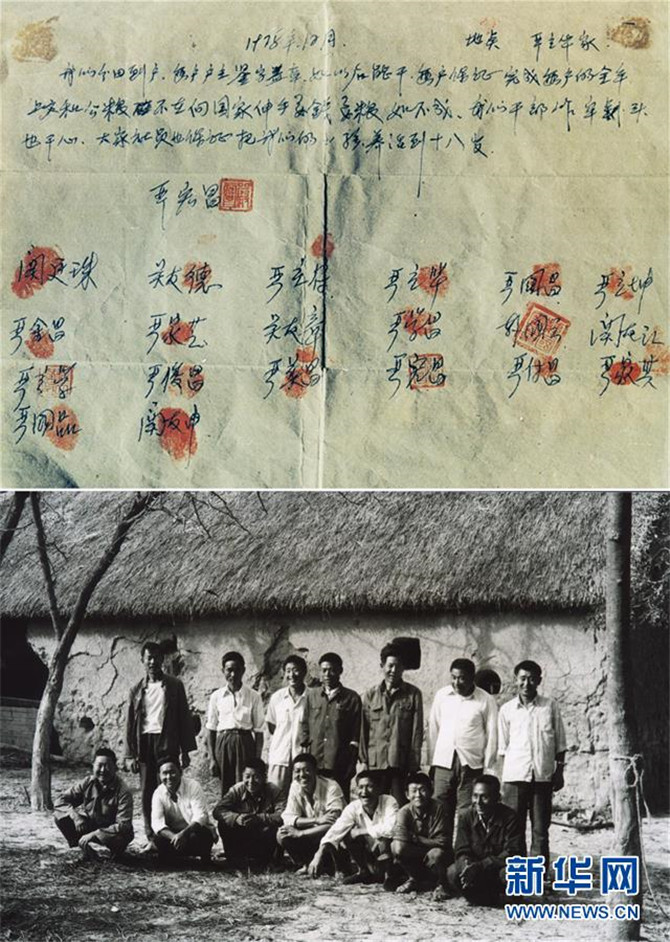 1978年12月. 地点 严立华家.
我们分田到户.每户户主签字盖章.如以后能干.每户保证完成每户的全年
上交和公粮不在向国家伸手要钱要粮.如不成.我们干部作牢刹.头
也干心.大家社员也保证把我们的小孩.养活到十八岁.
严宏昌
关廷珠 关友德 严立符 严立华 严国昌 严立坤
严金昌 严家芝 关友章 严学昌 韩国云 关友江
严立学 严俊昌 严美昌 严宏昌 严付昌 严家其
严国品 关友申
新华网
WWW.NEWS.CN